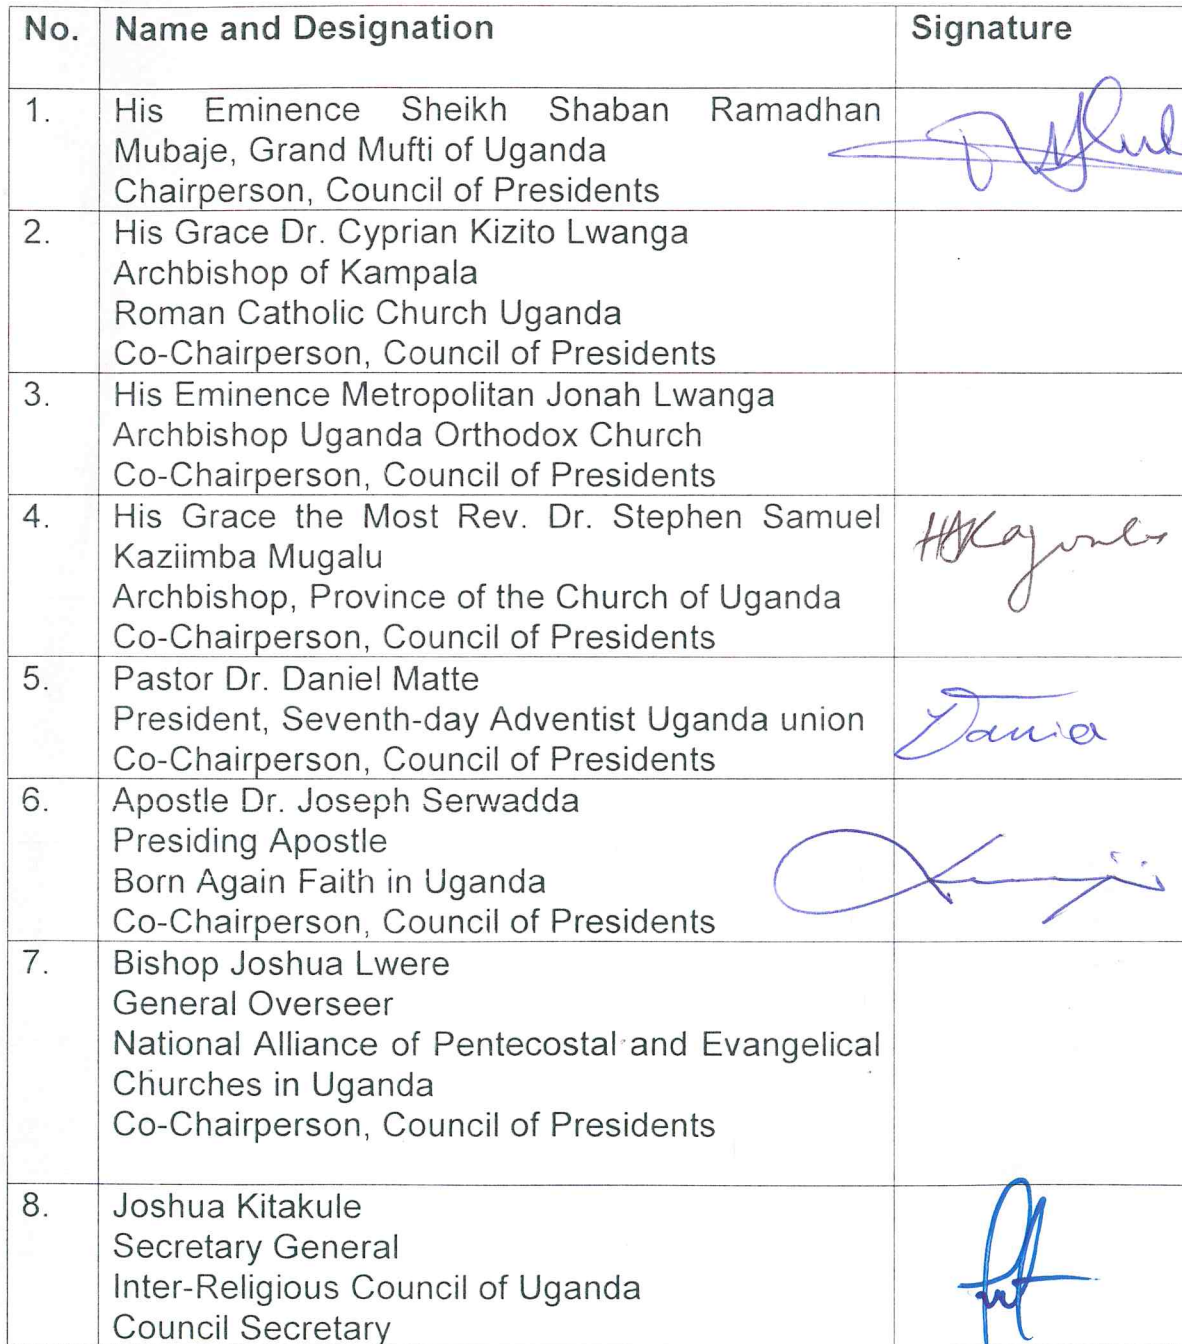 No. Name and Designation Signature
1. His Eminence Sheikh Shaban Ramadhan
Mubaje, Grand Mufti of Uganda
Chairperson, Council of Presidents
2. His Grace Dr. Cyprian Kizito Lwanga
Archbishop of Kampala
Roman Catholic Church Uganda
Co-Chairperson, Council of Presidents
3. His Eminence Metropolitan Jonah Lwanga
Archbishop Uganda Orthodox Church
Co-Chairperson, Council of Presidents
4. His Grace the Most Rev. Dr. Stephen Samuel
Kaziimba Mugalu
Archbishop, Province of the Church of Uganda
Co-Chairperson, Council of Presidents
5. Pastor Dr. Daniel Matte
President, Seventh-day Adventist Uganda union
Co-Chairperson, Council of Presidents
6. Apostle Dr. Joseph Serwadda
Presiding Apostle
Born Again Faith in Uganda
Co-Chairperson, Council of Presidents
7. Bishop Joshua Lwere
General Overseer
National Alliance of Pentecostal and Evangelical
Churches in Uganda
Co-Chairperson, Council of Presidents
8. Joshua Kitakule
Secretary General
Inter-Religious Council of Uganda
Council Secretary